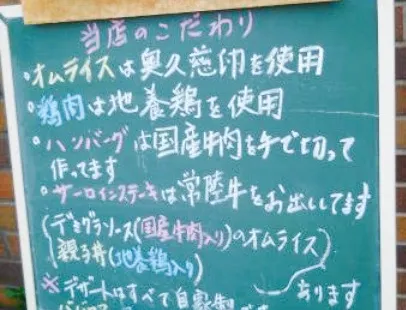 当店のこだわり
・オムライスは奥久慈卵を使用
・鶏肉は地養鶏を使用
・ハンバーグは国産牛肉を手で切って
作ってます
・サーロインステーキは常陸牛をお出ししてます
(デミグラソース(国産牛肉入り)のオムライス)
親子丼(地養鶏入り)
あります
※デザートはすべて自家製